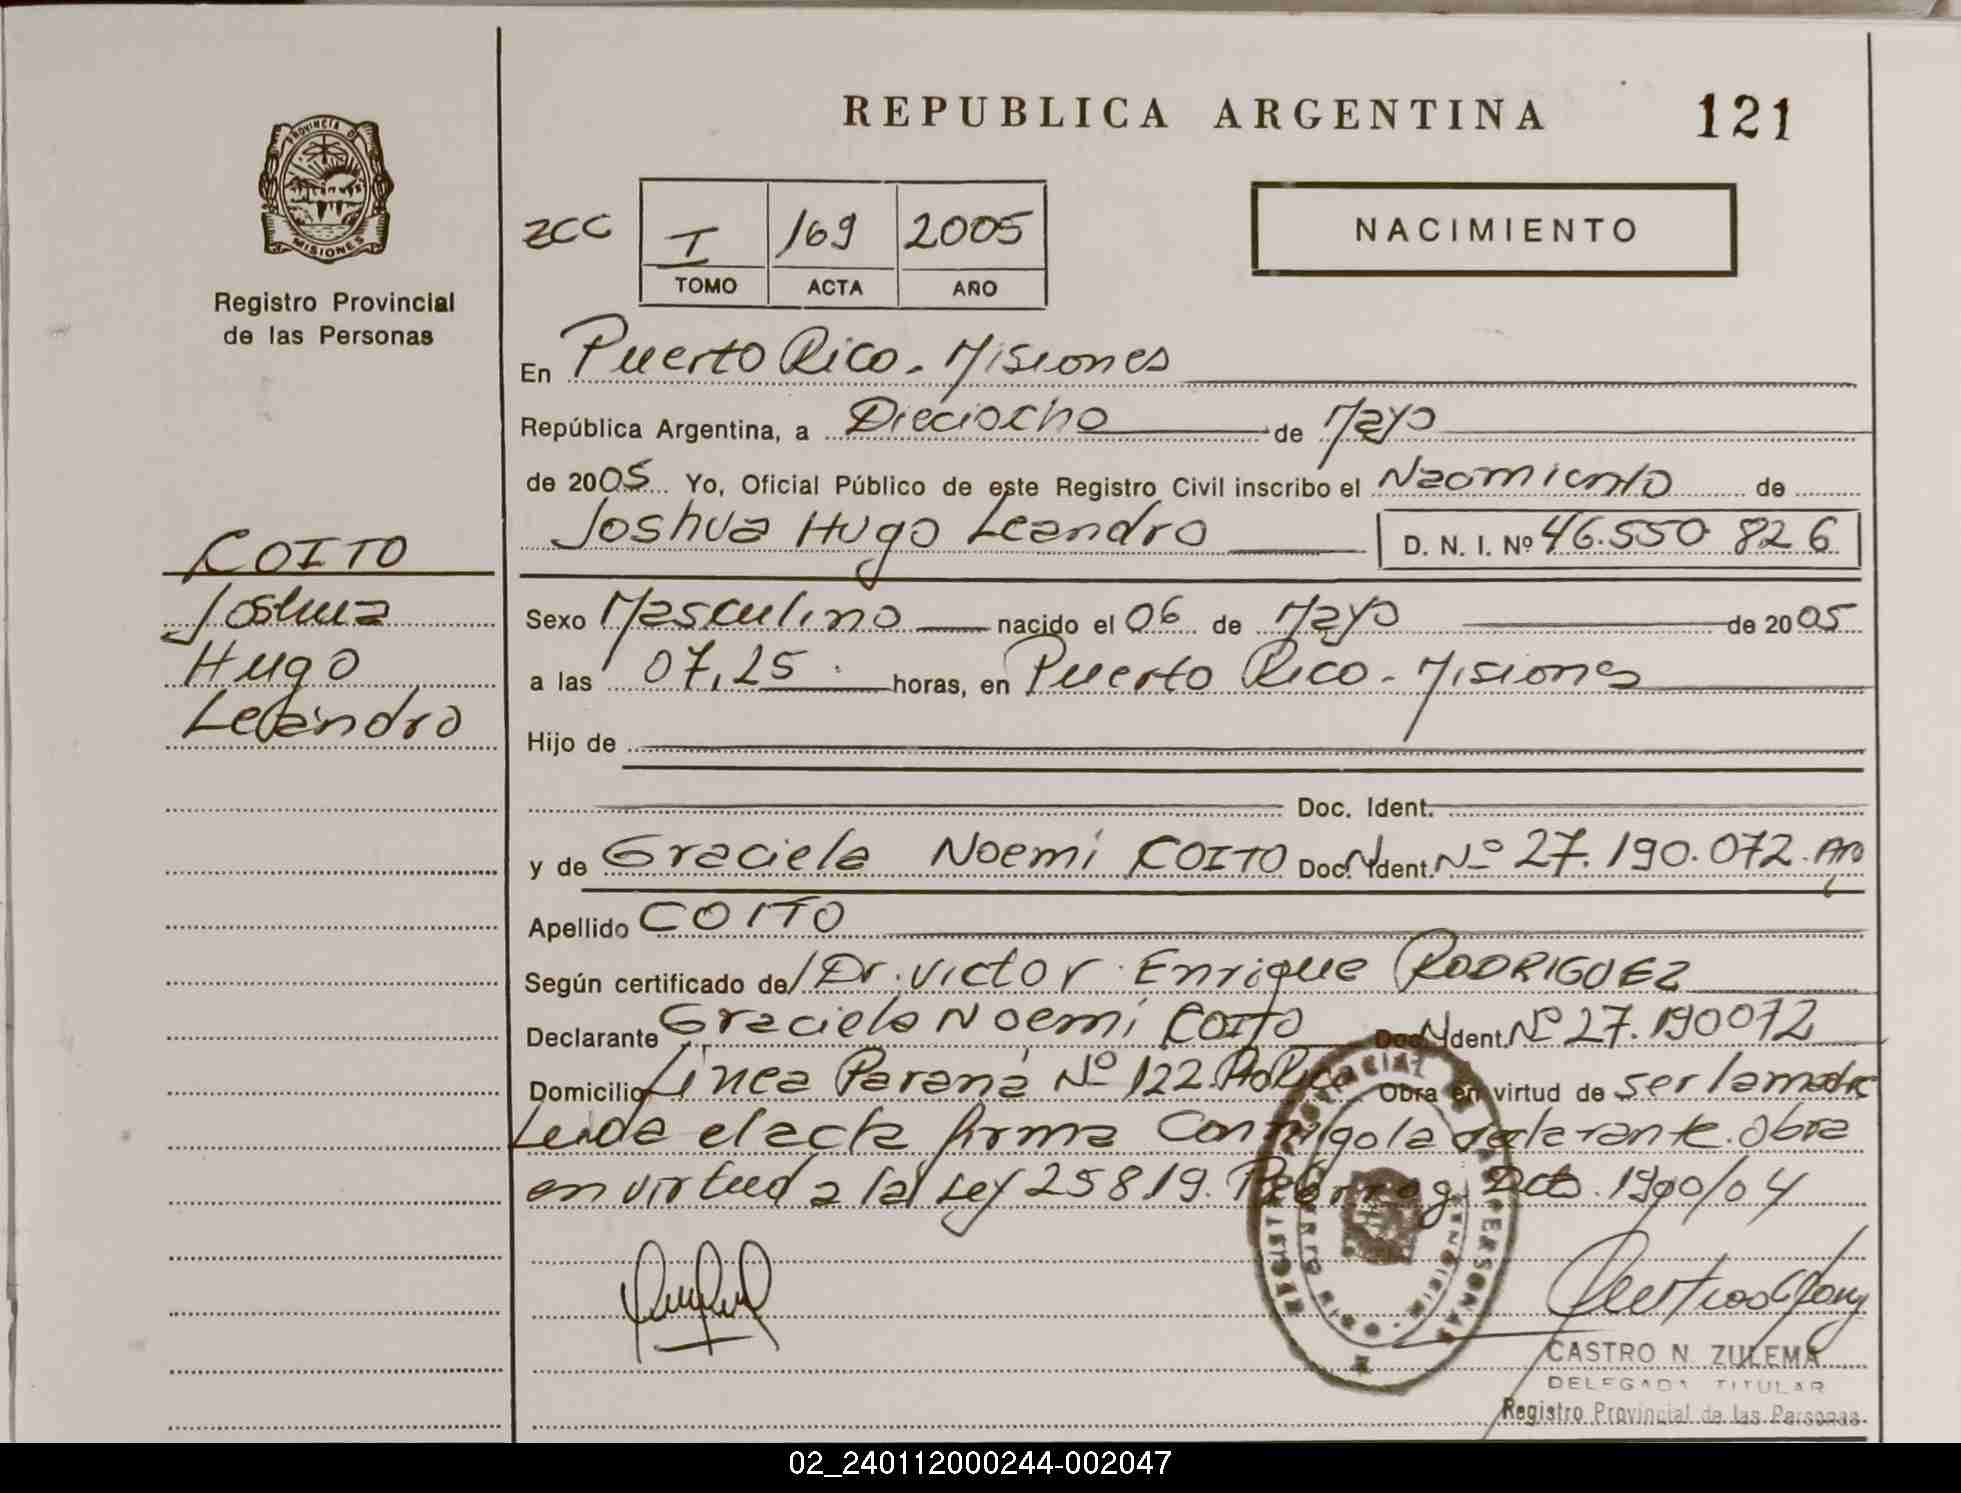 REPUBLICA ARGENTINA
121
PROVINCIA D
MISIONES
Registro Provincial
de las Personas
ZCC
I 169 2005
TOMO ACTA AÑO
NACIMIENTO
En Puerto Rico - Misiones
República Argentina, a Dieciocho de Mayo
de 2005 Yo, Oficial Público de este Registro Civil inscribo el Nacimiento de
Joshua Hugo Leandro D. N. I. Nº 46.550 826
COITO
Joshua
Hugo
Leandro
Sexo Masculino nacido el 06 de Mayo de 2005
a las 07,25 horas, en Puerto Rico - Misiones
Hijo de
Doc. Ident.
y de Graciela Noemi COITO Doc. N Ident. Nº 27.190.072. Arg
Apellido COITO
Según certificado de/ Dr. Victor Enrique RODRIGUEZ
Declarante Graciela Noemi COITO Doc. N Ident. Nº 27.190072
Domicilio Linea Paraná Nº 122. Pto Rico Obra en virtud de ser la madre
Leida el acta firma Conmigo la declarante. Obra
en virtud a la Ley 25819. Prorrog. Dcto. 1900/04
CASTRO N. ZULEMA
DELEGADA TITULAR
Registro Provincial de las Personas
02_240112000244-002047